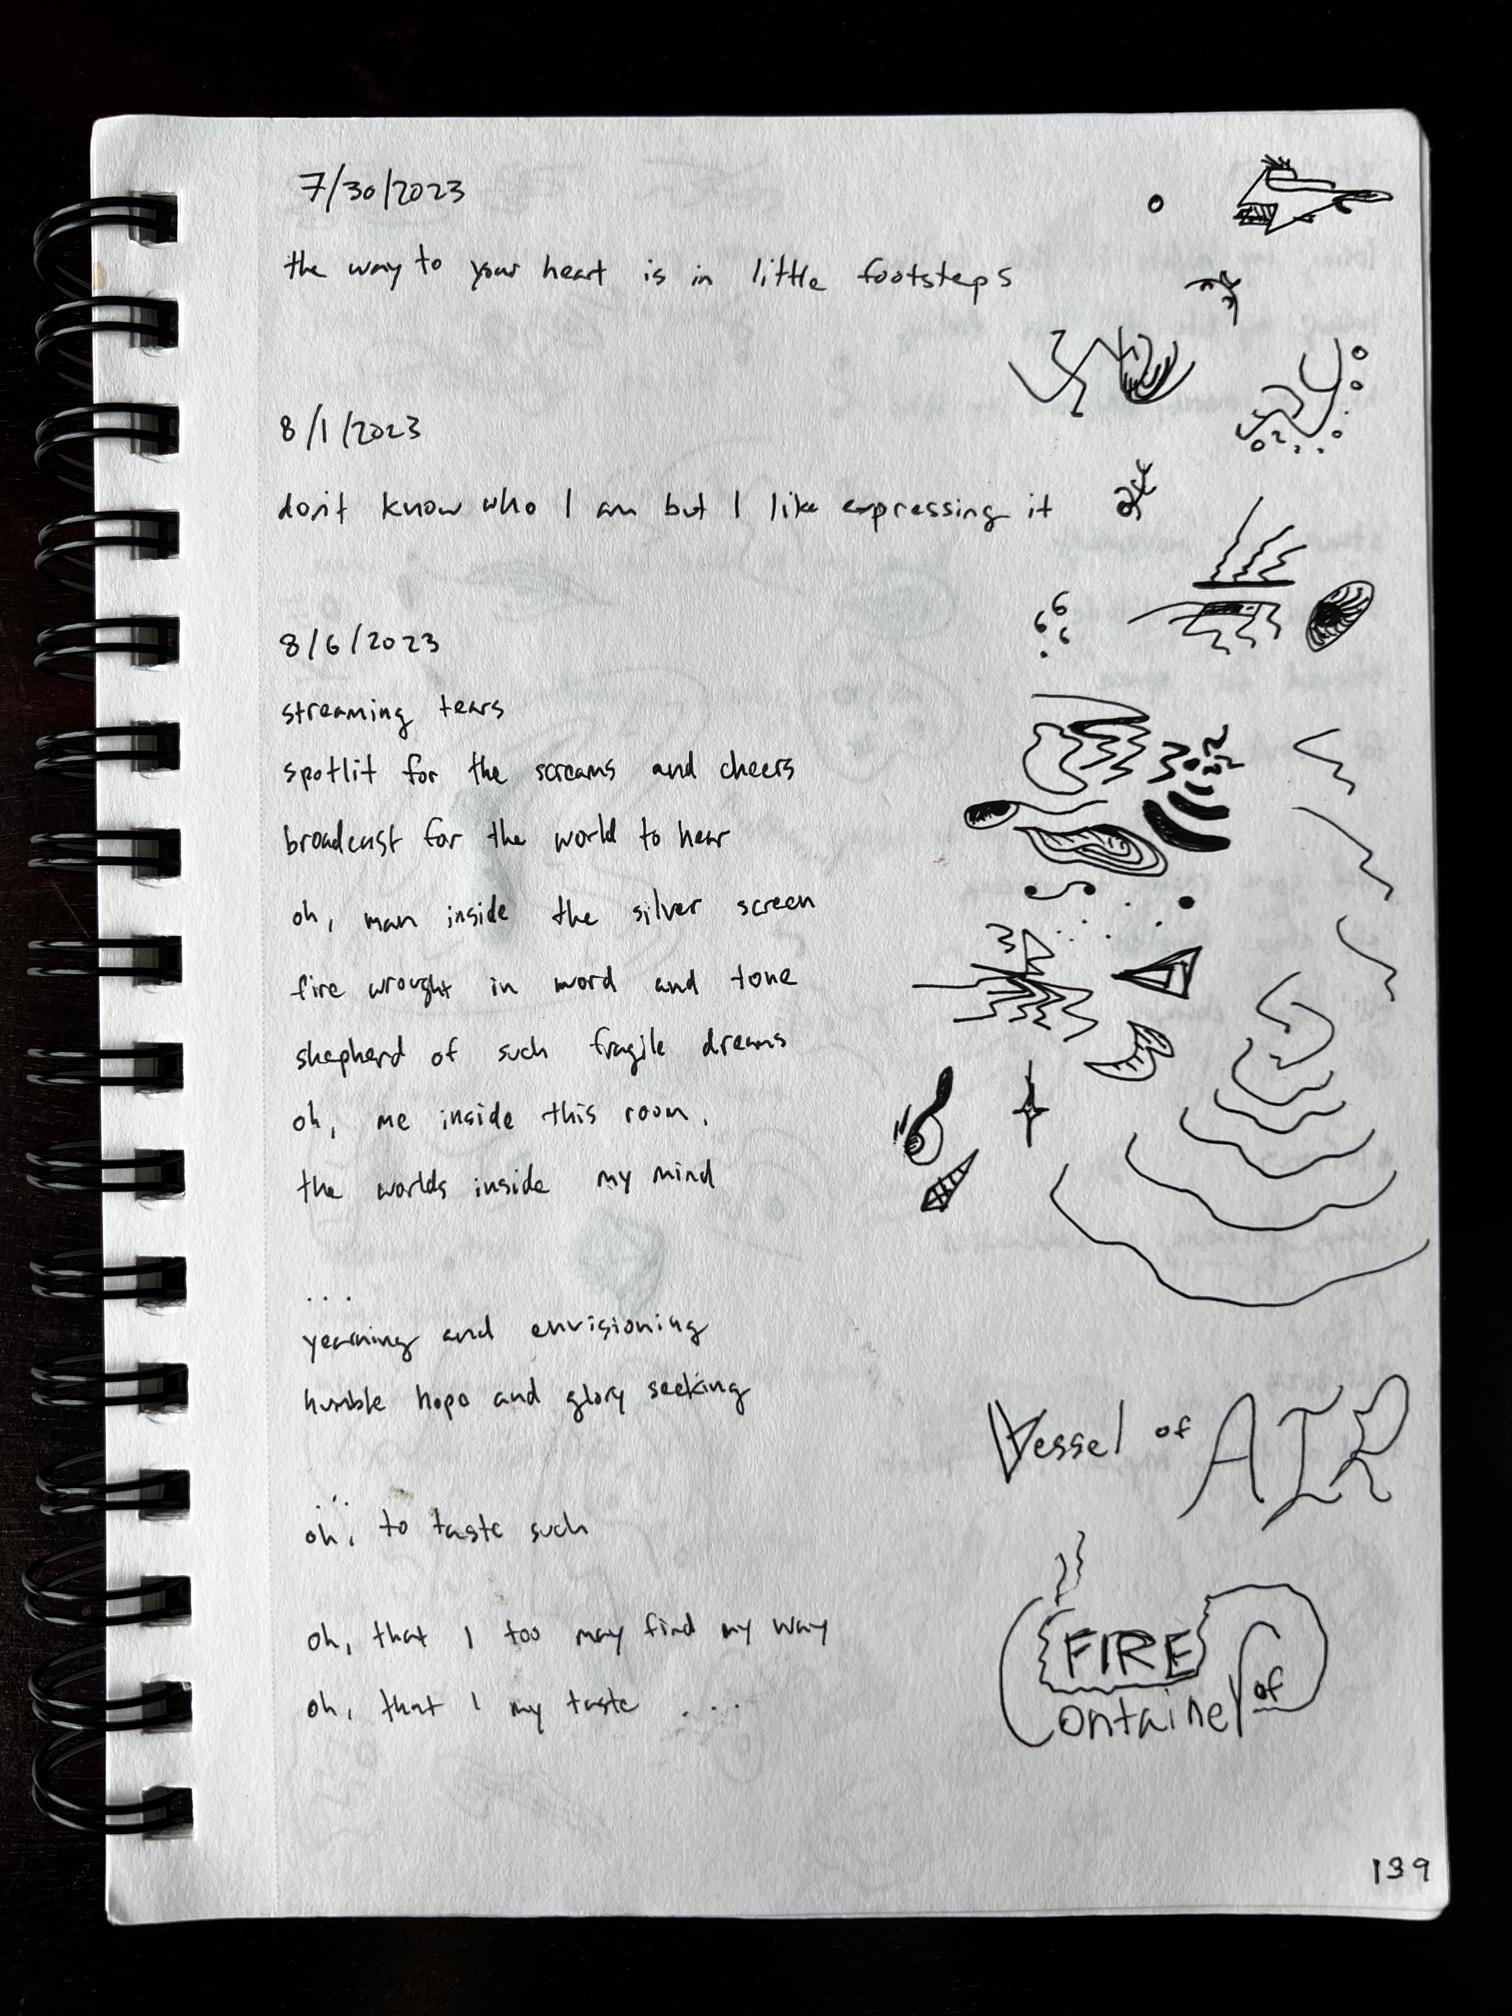 7/30/2023
the way to your heart is in little footsteps
8/1/2023
don't know who I am but I like expressing it
8/6/2023
streaming tears
spotlit for the screams and cheers
broadcast for the world to hear
oh, man inside the silver screen
fire wrought in word and tone
shepherd of such fragile dreams
oh, me inside this room,
the worlds inside my mind
...
yearning and envisioning
humble hope and glory seeking
...
oh, to taste such
oh, that I too may find my way
oh, that I my taste ...
Vessel of AIR
FIRE
Container of
139